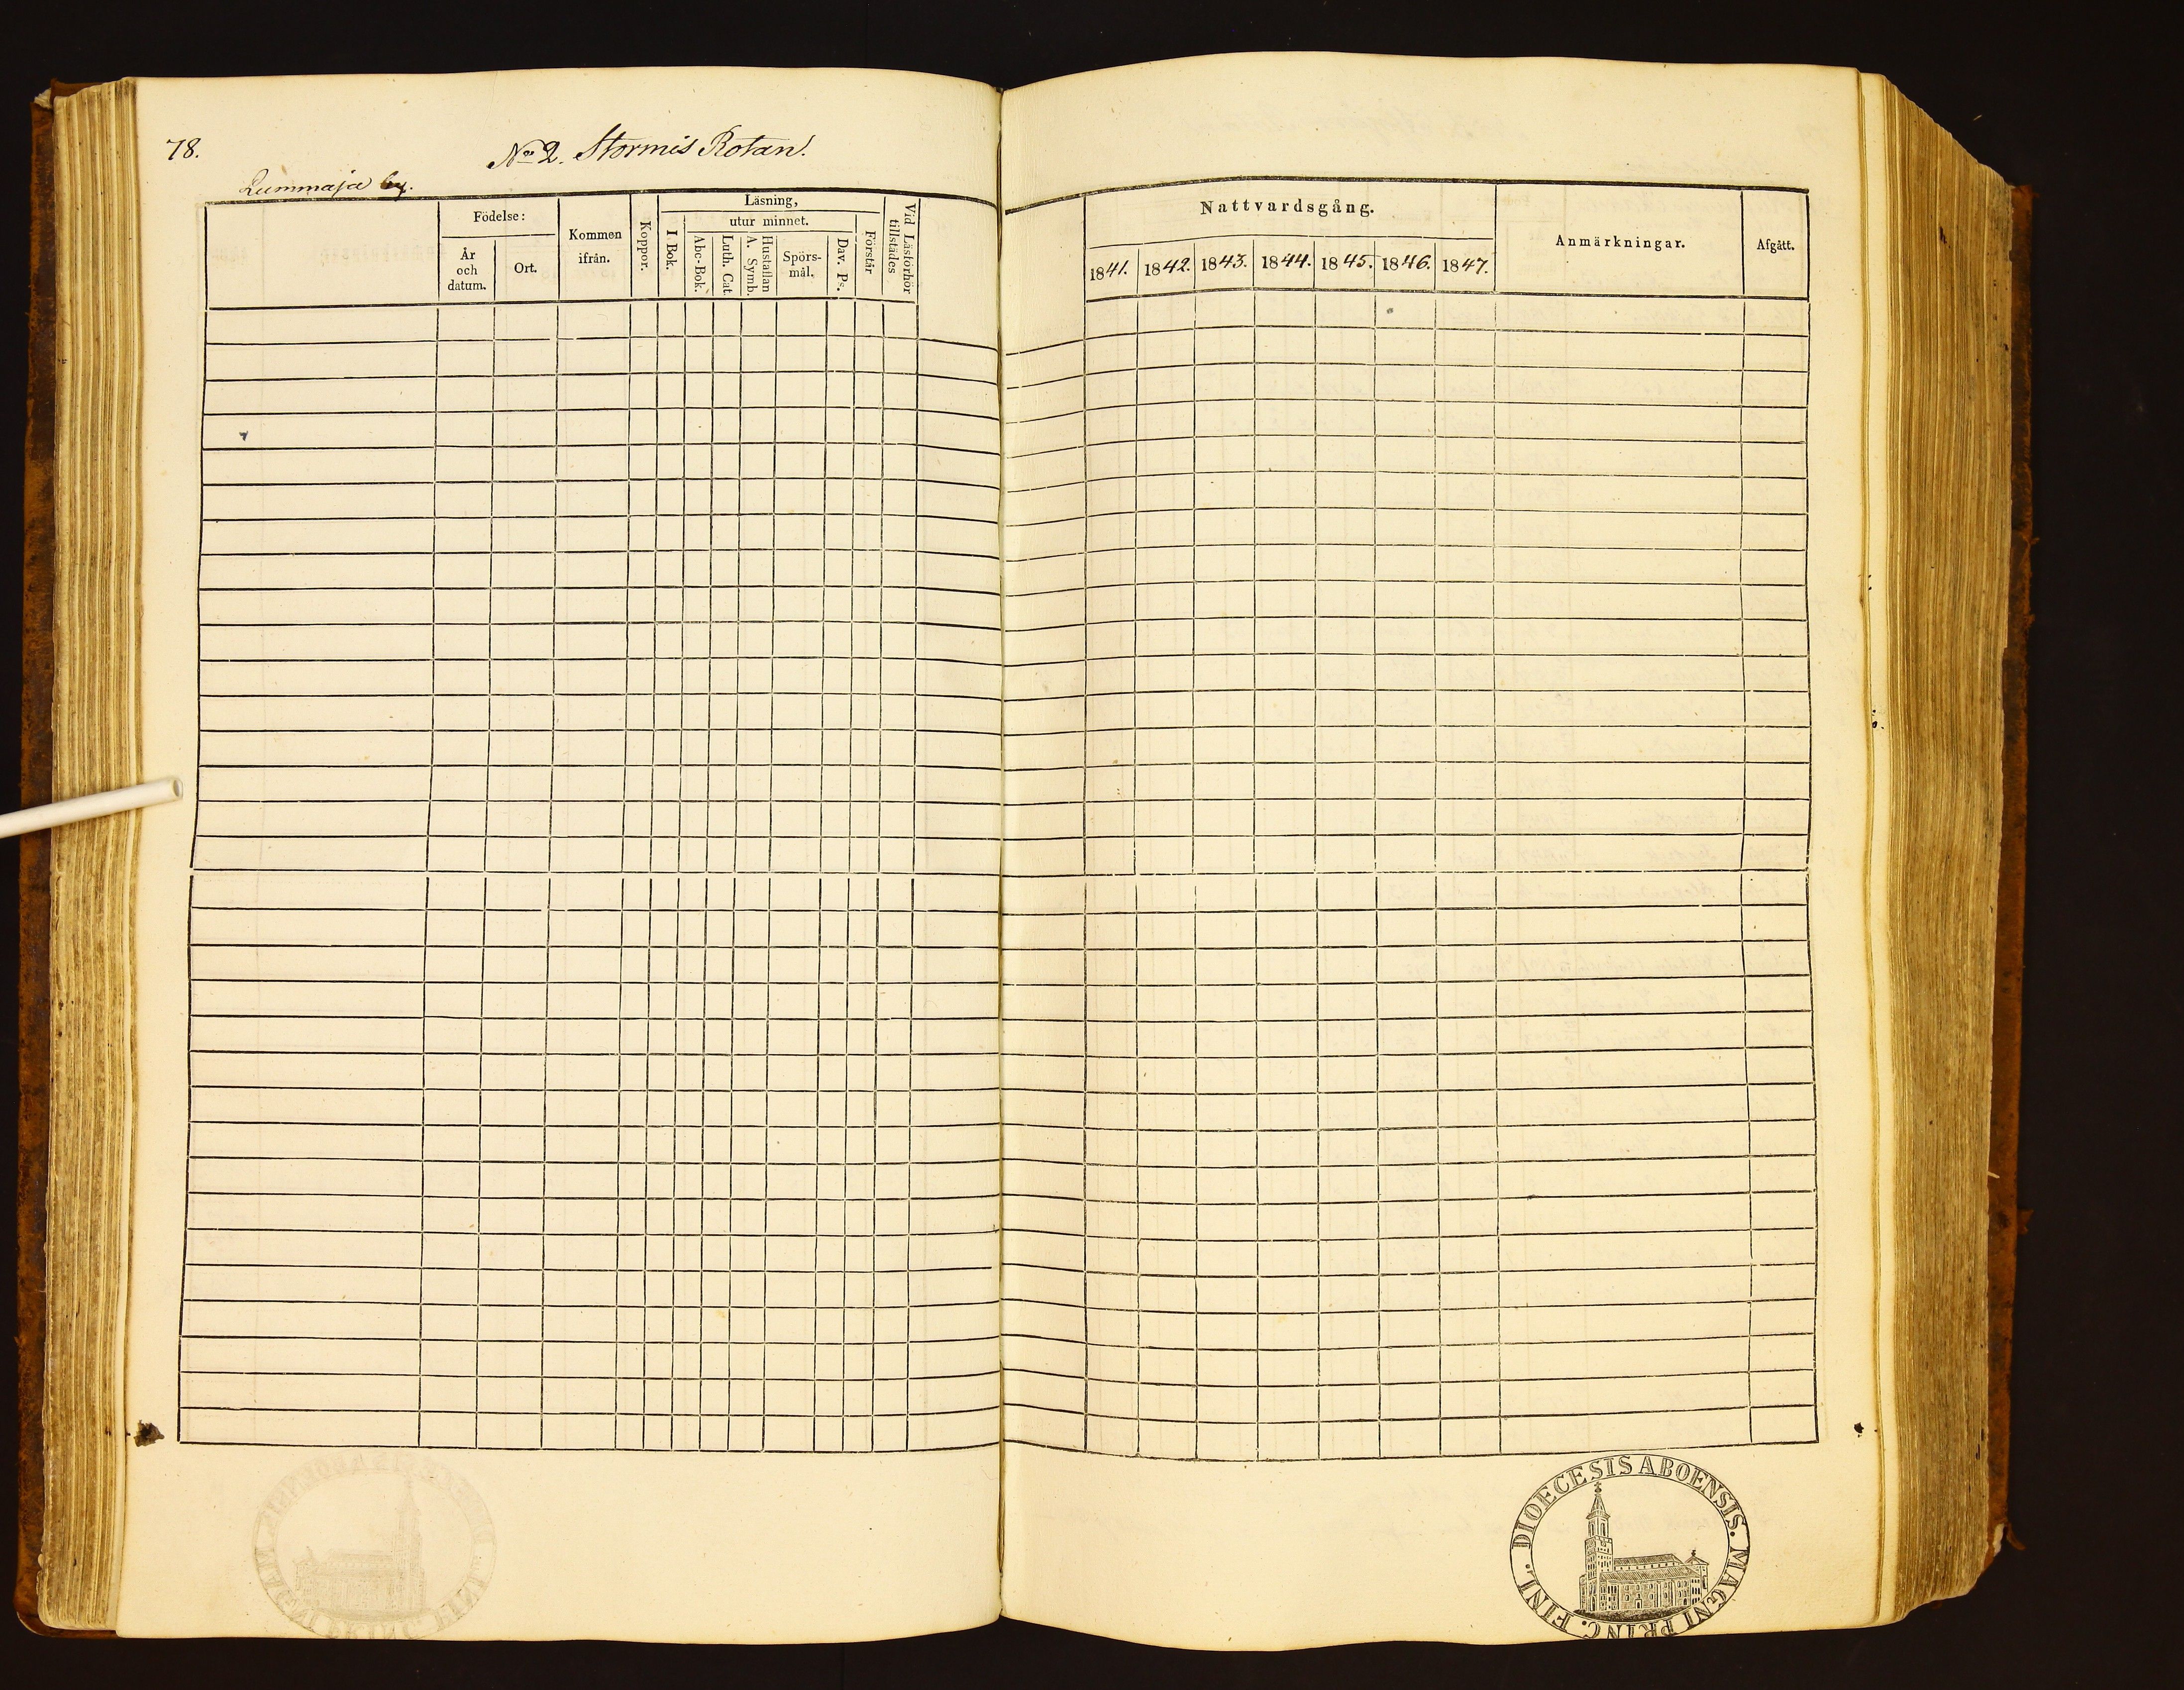 78.
No 2. Stormis Rotan.
Lummaja by.
Födelse:
År och datum.
Ort.
Kommen ifrån.
Koppor.
Läsning,
I Bok.
utur minnet.
Abc-Bok.
Luth. Cat.
Hustaflan A. Symb.
Spörs-mål.
Dav. Ps.
Förstår
Vid Läsförhör tillstädes
Nattvardsgång.
1841. 1842. 1843. 1844. 1845. 1846. 1847.
Anmärkningar.
Afgått.
DIOECESIS ABOENSIS. MAGNI PRINC. FINL.